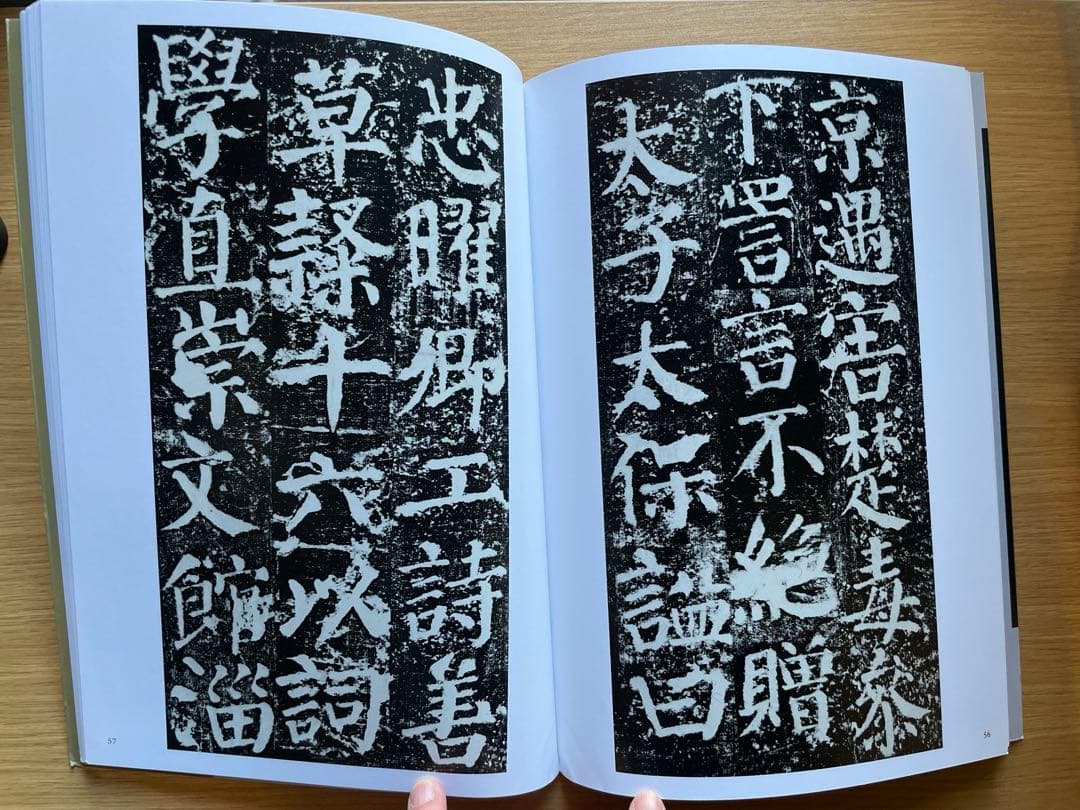 京遇害楚毒參
下詈言不絕贈
太子太保諡曰
56
忠曜卿工詩善
草隸十六以詞
學直崇文館淄
57